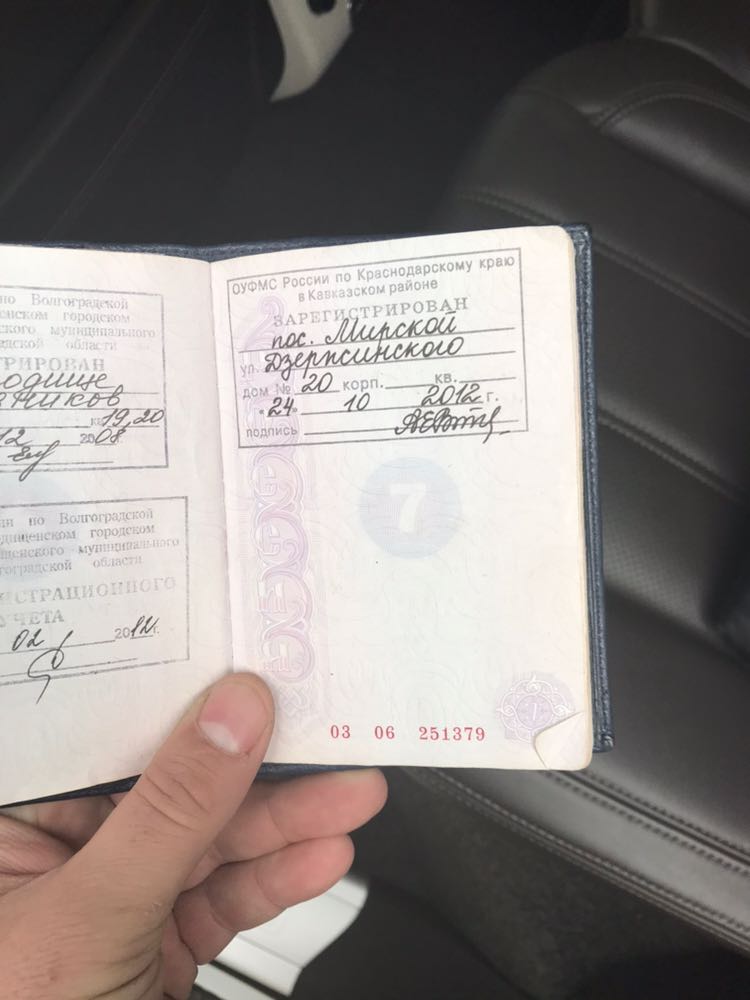 но Волгоградской
енском городском
ского муниципального
адской области
ТРИРОВАН
одище
зников
19,20
12 2008
ии по Волгоградской
одищенском городском
щенского муниципального
гоградской области
ИСТРАЦИОННОГО
УЧЕТА
02 2012г.
ОУФМС России по Краснодарскому краю
в Кавказском районе
ЗАРЕГИСТРИРОВАН
пос. Мирской
ул. Дзержинского
дом № 20 корп. кв.
"24" 10 2012 г.
подпись
7
03 06 251379
7